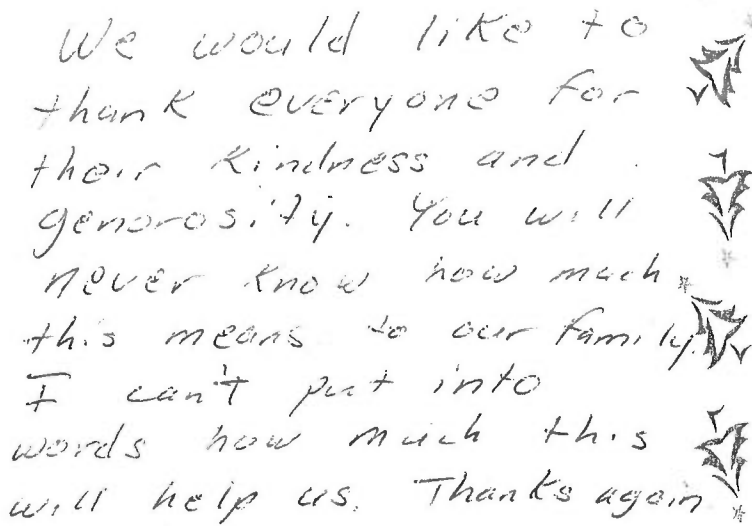 We would like to
thank everyone for
their kindness and
generosity. You will
never know how much
this means to our family.
I can't put into
words how much this
will help us. Thanks again